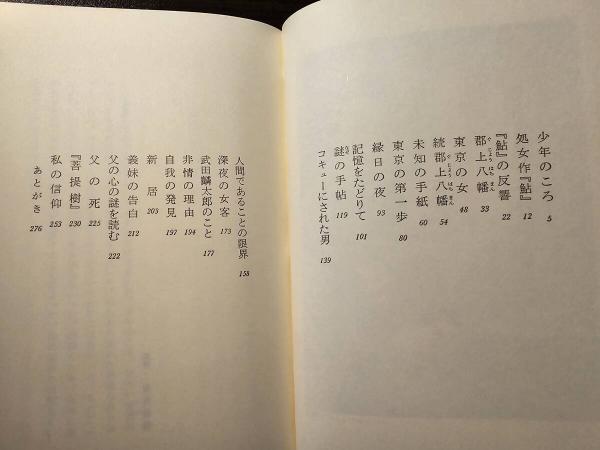 少年のころ 5
処女作『鮎』 12
『鮎』の反響 22
郡上八幡 33
ぐじょうはちまん
東京の女 48
続郡上八幡 54
ぐじょうはちまん
未知の手紙 60
東京の第一歩 80
縁日の夜 93
記憶をたどりて 101
謎の手帖 119
なぞ
コキューにされた男 139
人間であることの限界 158
深夜の女客 173
武田麟太郎のこと 177
非情の理由 194
自我の発見 197
新居 203
義妹の告白 212
父の心の謎を読む 222
父の死 225
『菩提樹』 230
私の信仰 253
あとがき 276